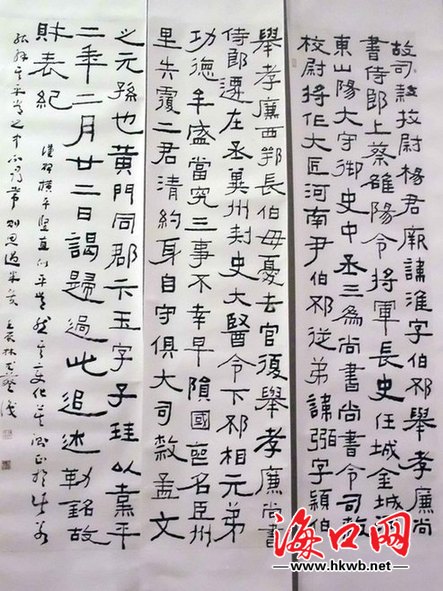 故司隸校尉楊君厥諱淮字伯邳舉孝廉尚
書侍郎上蔡雒陽令將軍長史任城金城河
東山陽大守御史中丞三為尚書尚書令司隸
校尉將作大匠河南尹伯邳從弟諱弼字穎伯
舉孝廉西鄂長伯母憂去官復舉孝廉尚書
侍郎遷左丞冀州刺史大醫令下邳相元弟
功德牟盛當究三事不幸早隕國喪名臣州
里失覆二君清約身自守俱大司隸孟文
之元孫也黃門同郡卞玉字子珪以熹平
二年二月廿二日謁歸過此追述勒銘故
財表紀
海口网
www.hkwb.net